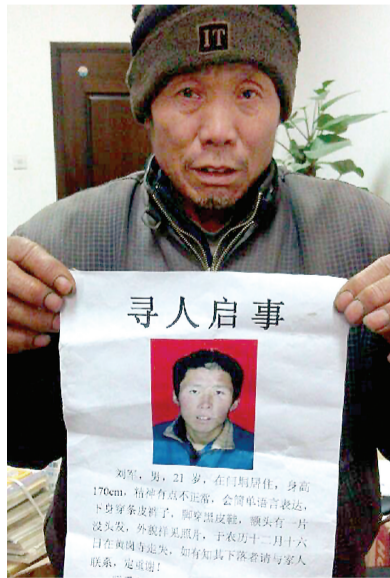 IT
寻人启事
刘军，男，21 岁，在门垌居住，身高
170cm，精神有点不正常，会简单语言表达，
下身穿条皮裤子，脚穿黑皮鞋，额头有一片
没头发，外貌祥见照片，于农历十二月十六
日在黄岗寺走失，如有知其下落者请与家人
联系，定重谢！